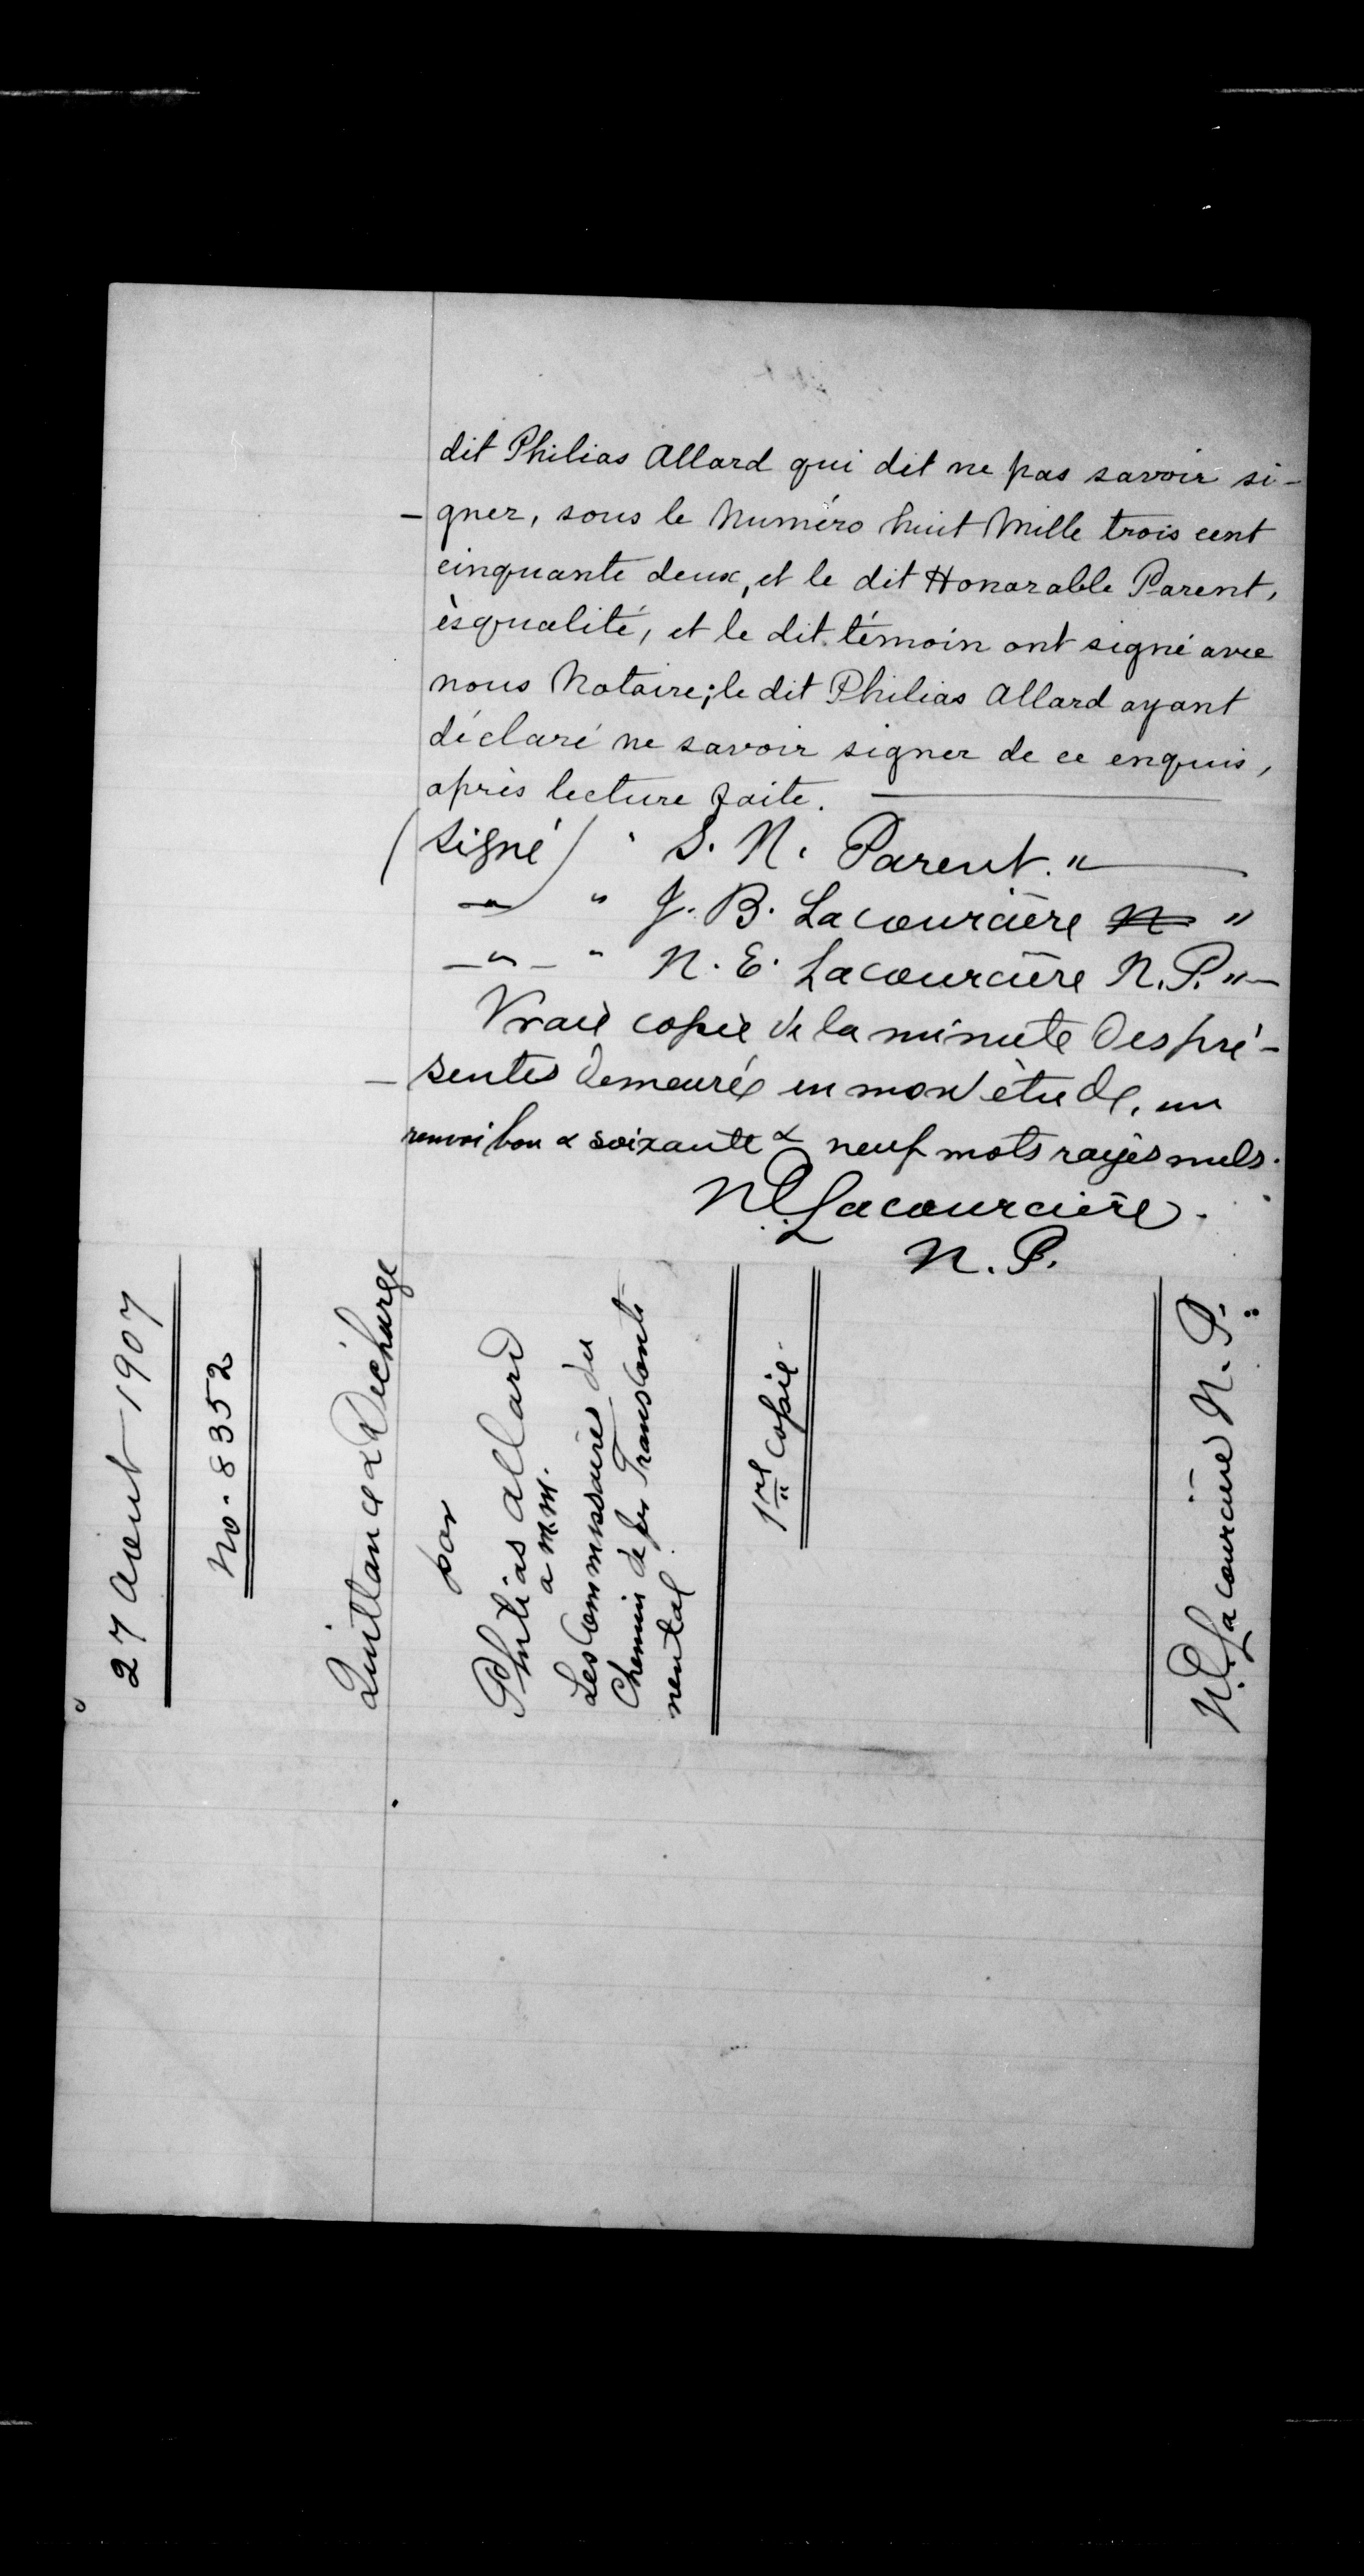 dit Philias Allard qui dit ne pas savoir si-
-gner, sous le Numéro huit Mille trois cent
cinquante deux, et le dit Honorable Parent,
èsqualité, et le dit témoin ont signé avec
nous Notaire; le dit Philias Allard ayant
déclaré ne savoir signer de ce enquis,
après lecture faite.
(Signé) " S. N. Parent. "
" " J. B. Lacourcière N "
-"- " N. E. Lacourcière N. P. "-
Vraie copie de la minute des pré-
-sentes demeurée en mon étude, un
renvoi bon & soixante & neuf mots rayés nuls.
N E Lacourcière.
N. P.
27 Aout 1907
No. 8352
Quittance & Décharge
par
Philias Allard
a M.M.
Les Commissaires du
Chemin de fer Transconti
nental
1re Copie.
N. E. Lacourcière N. P.